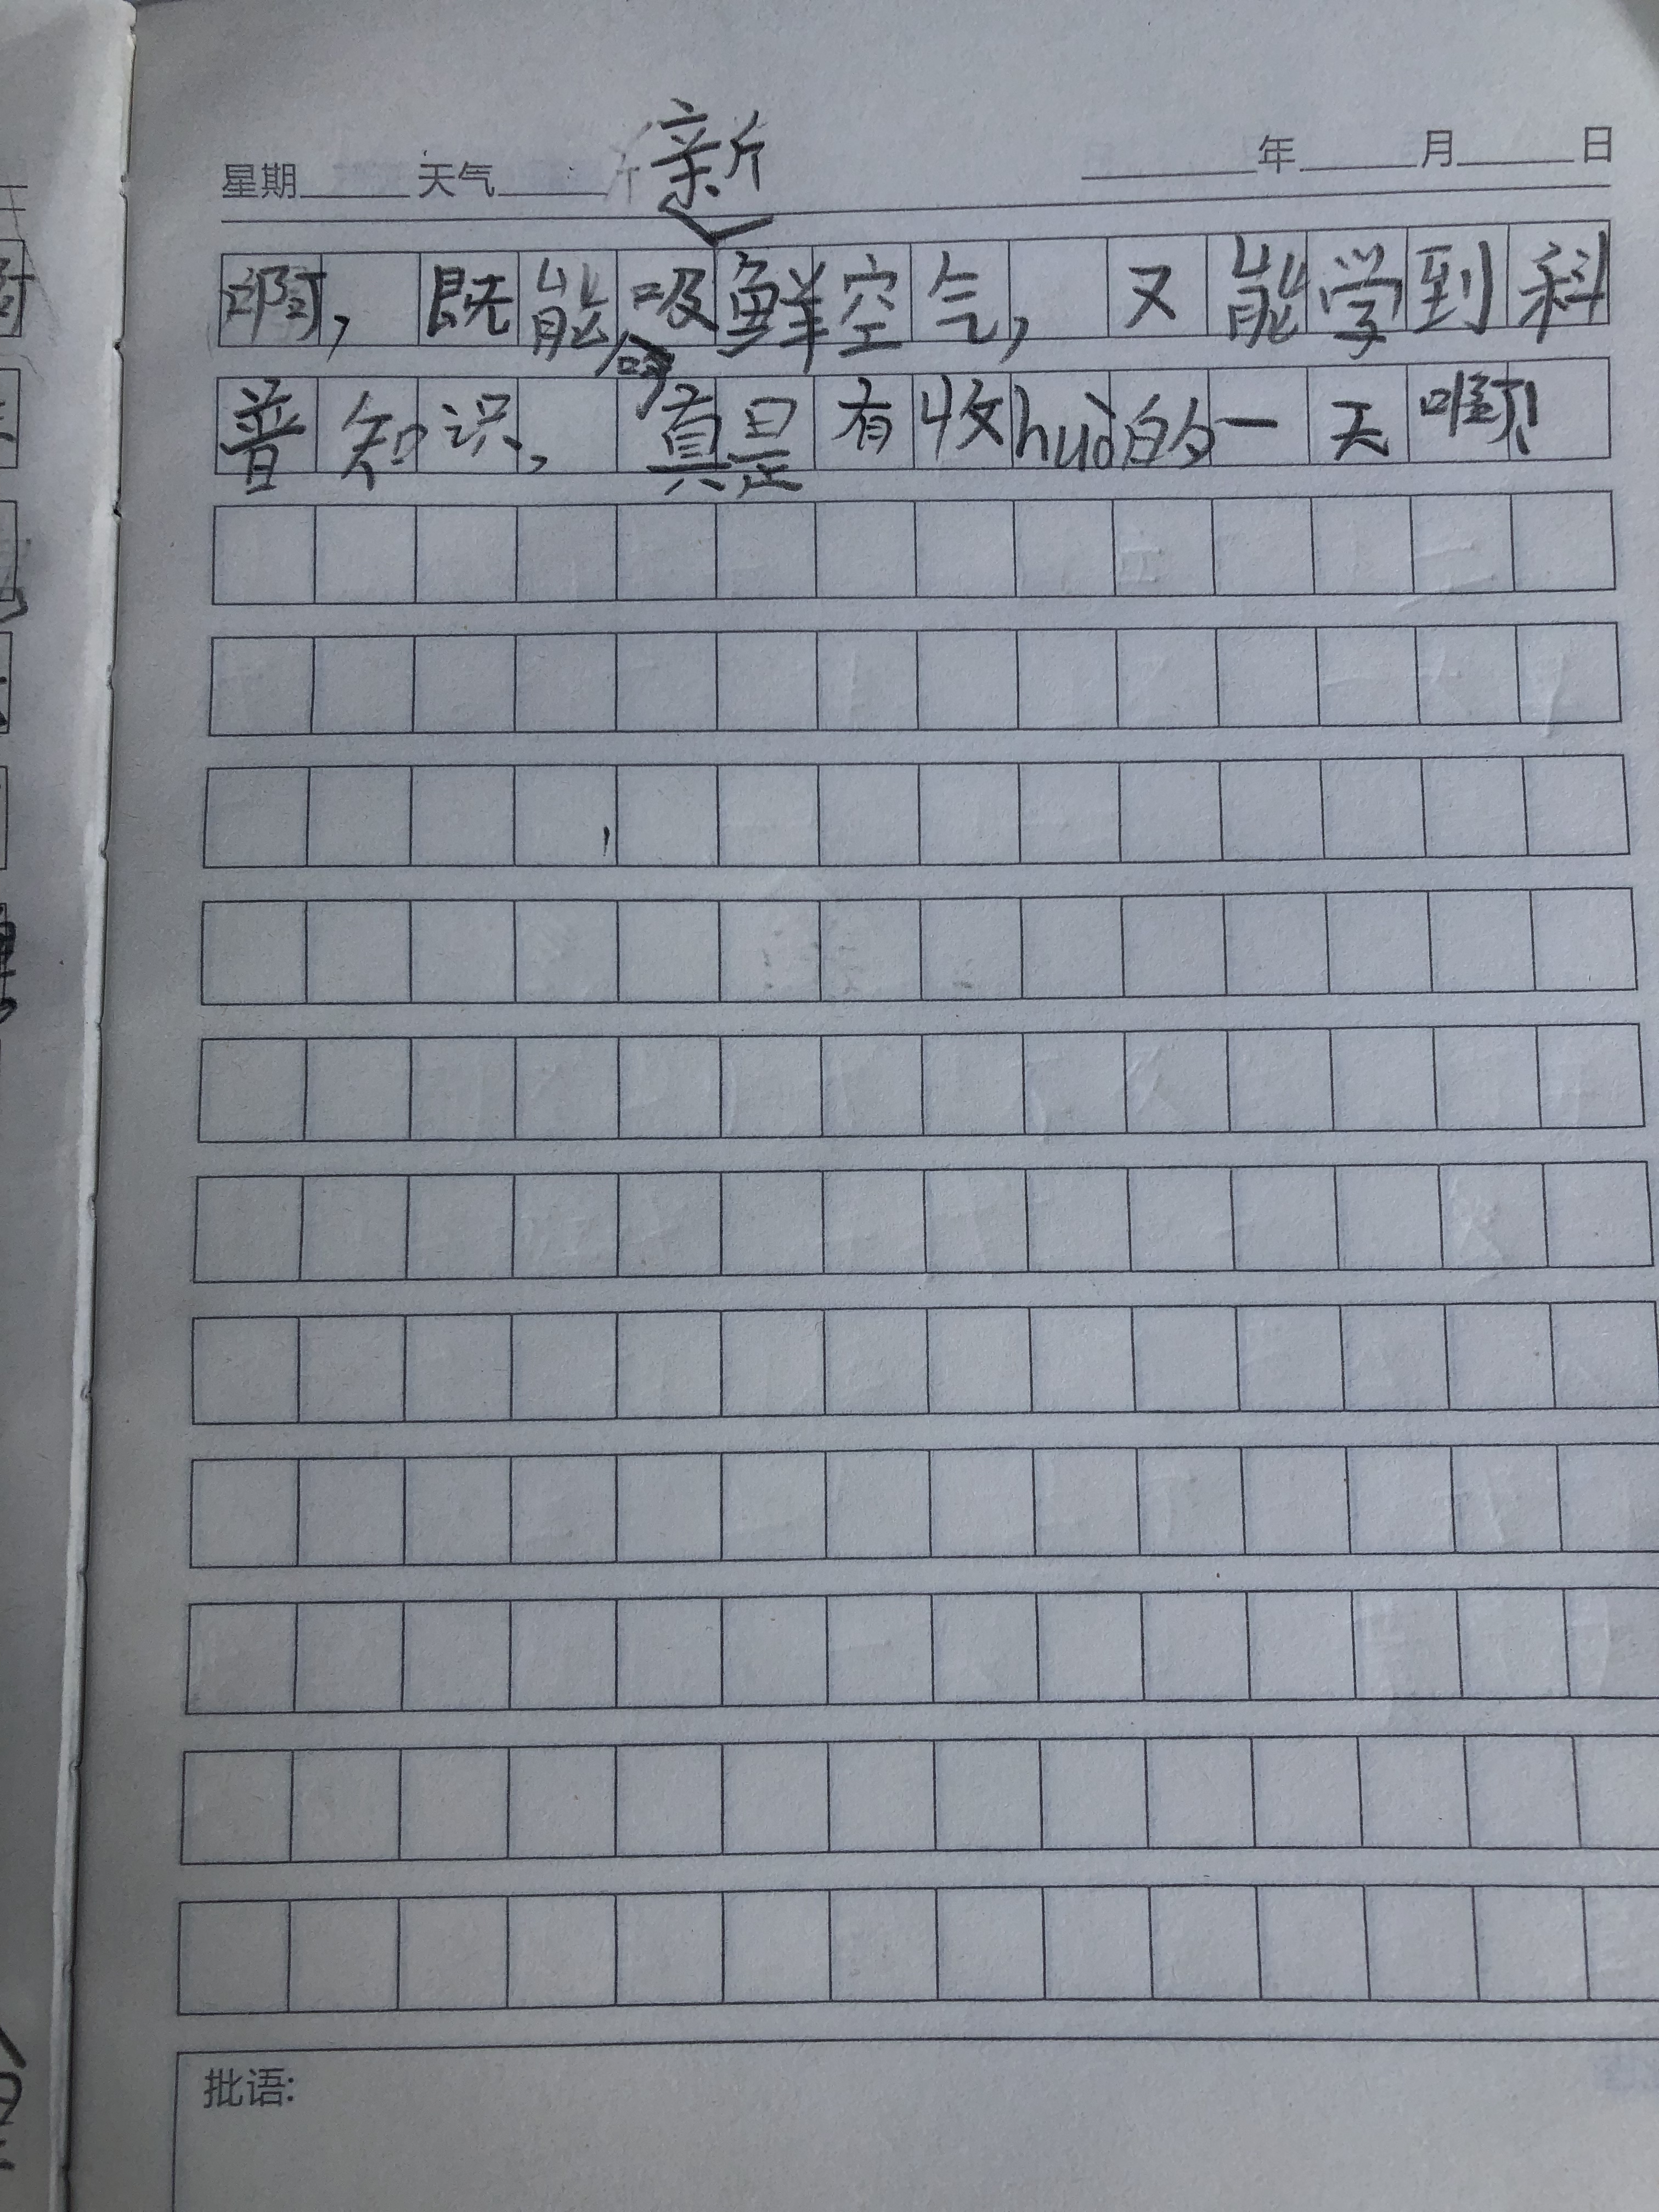 星期 天气 年 月 日
新
啊,既能吸鲜空气,又能学到科
普知识,真是有收huò的一天啊!
批语: